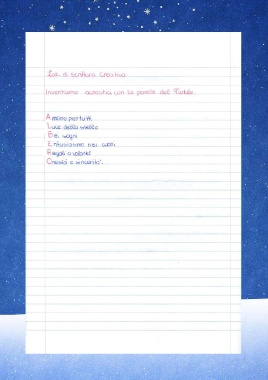 Lab. di Scrittura Creativa
Inventiamo acrostici con le parole del Natale.
Amore per tutti
Luce della stella
Bei sogni
Entusiasmo nei cuori
Regali a volontà
Onestà e sincerità.